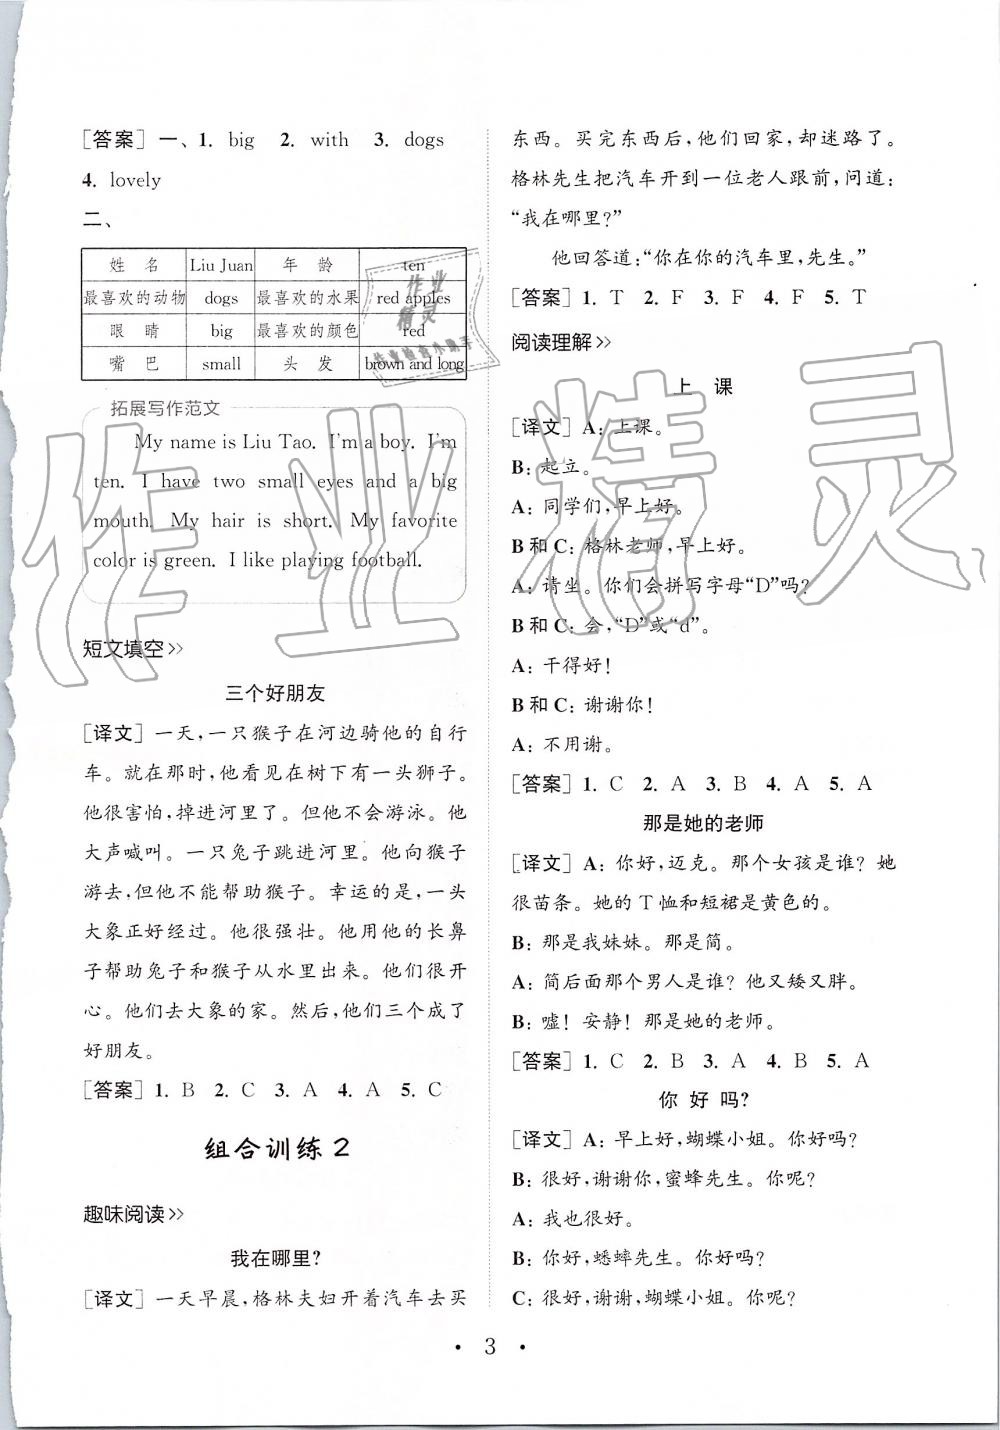 [答案] 一、1. big 2. with 3. dogs
4. lovely
二、
姓 名 Liu Juan 年 龄 ten
最喜欢的动物 dogs 最喜欢的水果 red apples
眼 睛 big 最喜欢的颜色 red
嘴 巴 small 头 发 brown and long
拓展写作范文
My name is Liu Tao. I'm a boy. I'm
ten. I have two small eyes and a big
mouth. My hair is short. My favorite
color is green. I like playing football.
短文填空>>
三个好朋友
[译文] 一天,一只猴子在河边骑他的自行
车。就在那时,他看见在树下有一头狮子。
他很害怕,掉进河里了。但他不会游泳。他
大声喊叫。一只兔子跳进河里。他向猴子
游去,但他不能帮助猴子。幸运的是,一头
大象正好经过。他很强壮。他用他的长鼻
子帮助兔子和猴子从水里出来。他们很开
心。他们去大象的家。然后,他们三个成了
好朋友。
[答案] 1. B 2. C 3. A 4. A 5. C
组合训练2
趣味阅读>>
我在哪里?
[译文] 一天早晨,格林夫妇开着汽车去买
东西。买完东西后,他们回家,却迷路了。
格林先生把汽车开到一位老人跟前,问道:
“我在哪里?”
他回答道:“你在你的汽车里,先生。”
[答案] 1. T 2. F 3. F 4. F 5. T
阅读理解>>
上 课
[译文] A: 上课。
B: 起立。
A: 同学们,早上好。
B 和 C: 格林老师,早上好。
A: 请坐。你们会拼写字母“D”吗?
B 和 C: 会,“D”或“d”。
A: 干得好!
B 和 C: 谢谢你!
A: 不用谢。
[答案] 1. C 2. A 3. B 4. A 5. A
那是她的老师
[译文] A: 你好,迈克。那个女孩是谁? 她
很苗条。她的 T 恤和短裙是黄色的。
B: 那是我妹妹。那是简。
A: 简后面那个男人是谁? 他又矮又胖。
B: 嘘! 安静! 那是她的老师。
[答案] 1. C 2. B 3. A 4. B 5. A
你 好 吗?
[译文] A: 早上好,蝴蝶小姐。你好吗?
B: 很好,谢谢你,蜜蜂先生。你呢?
A: 我也很好。
B: 你好,蟋蟀先生。你好吗?
C: 很好,谢谢,蝴蝶小姐。你呢?
· 3 ·
作业精灵
作业
精灵
作业检查小助手